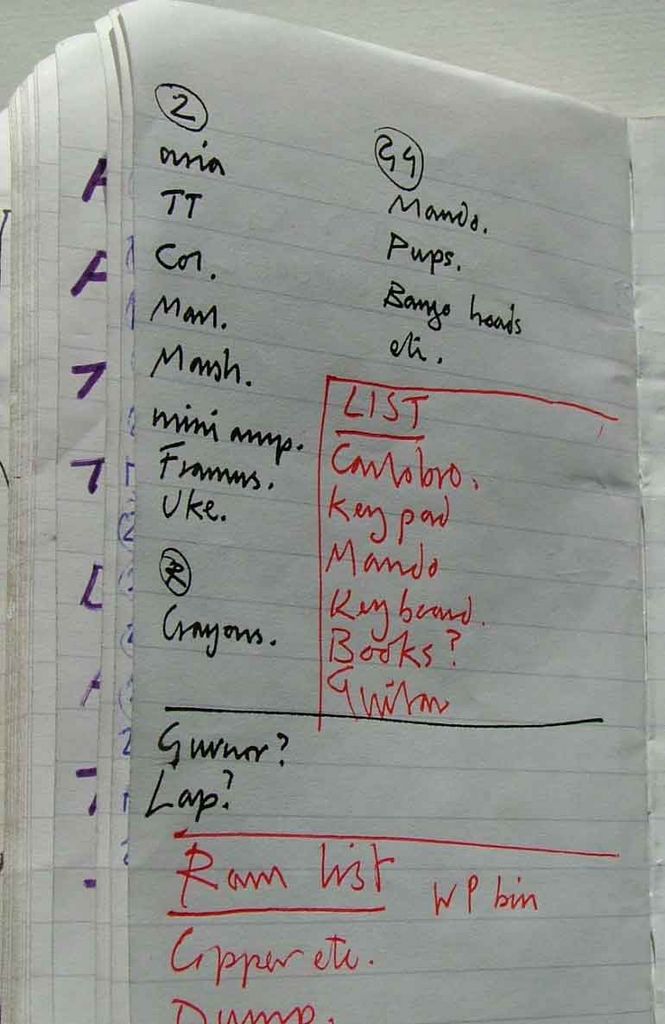 2
asia
TT
Col.
Marl.
Marsh.
mini amp.
Framus.
Uke.
R
Crayons.
G4
Mando.
Pups.
Banjo heads
etc.
LIST
Keypad
Mando
Keyboard.
Books?
Guitar
Lap?
Ram list
WP bin
Copper etc.
Dump.